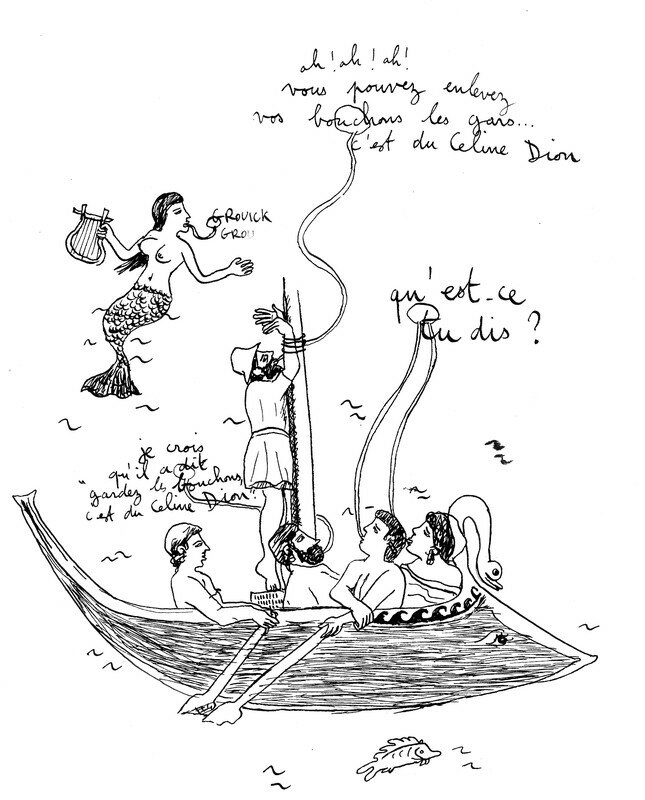 ah ! ah ! ah !
vous pouvez enlevez
vos bouchons les gars...
c'est du Celine Dion
GROUICK
GROU
qu'est-ce
tu dis ?
je crois
qu'il a dit
"gardez les bouchons,
c'est du Celine Dion"